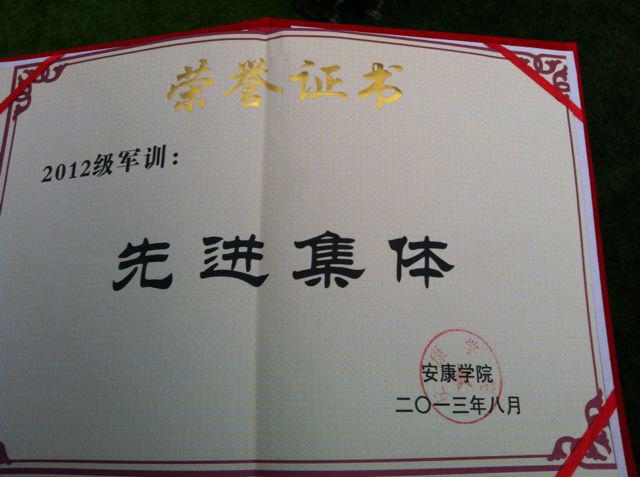 荣誉证书
2012级军训：
先进集体
安康学院
二〇一三年八月